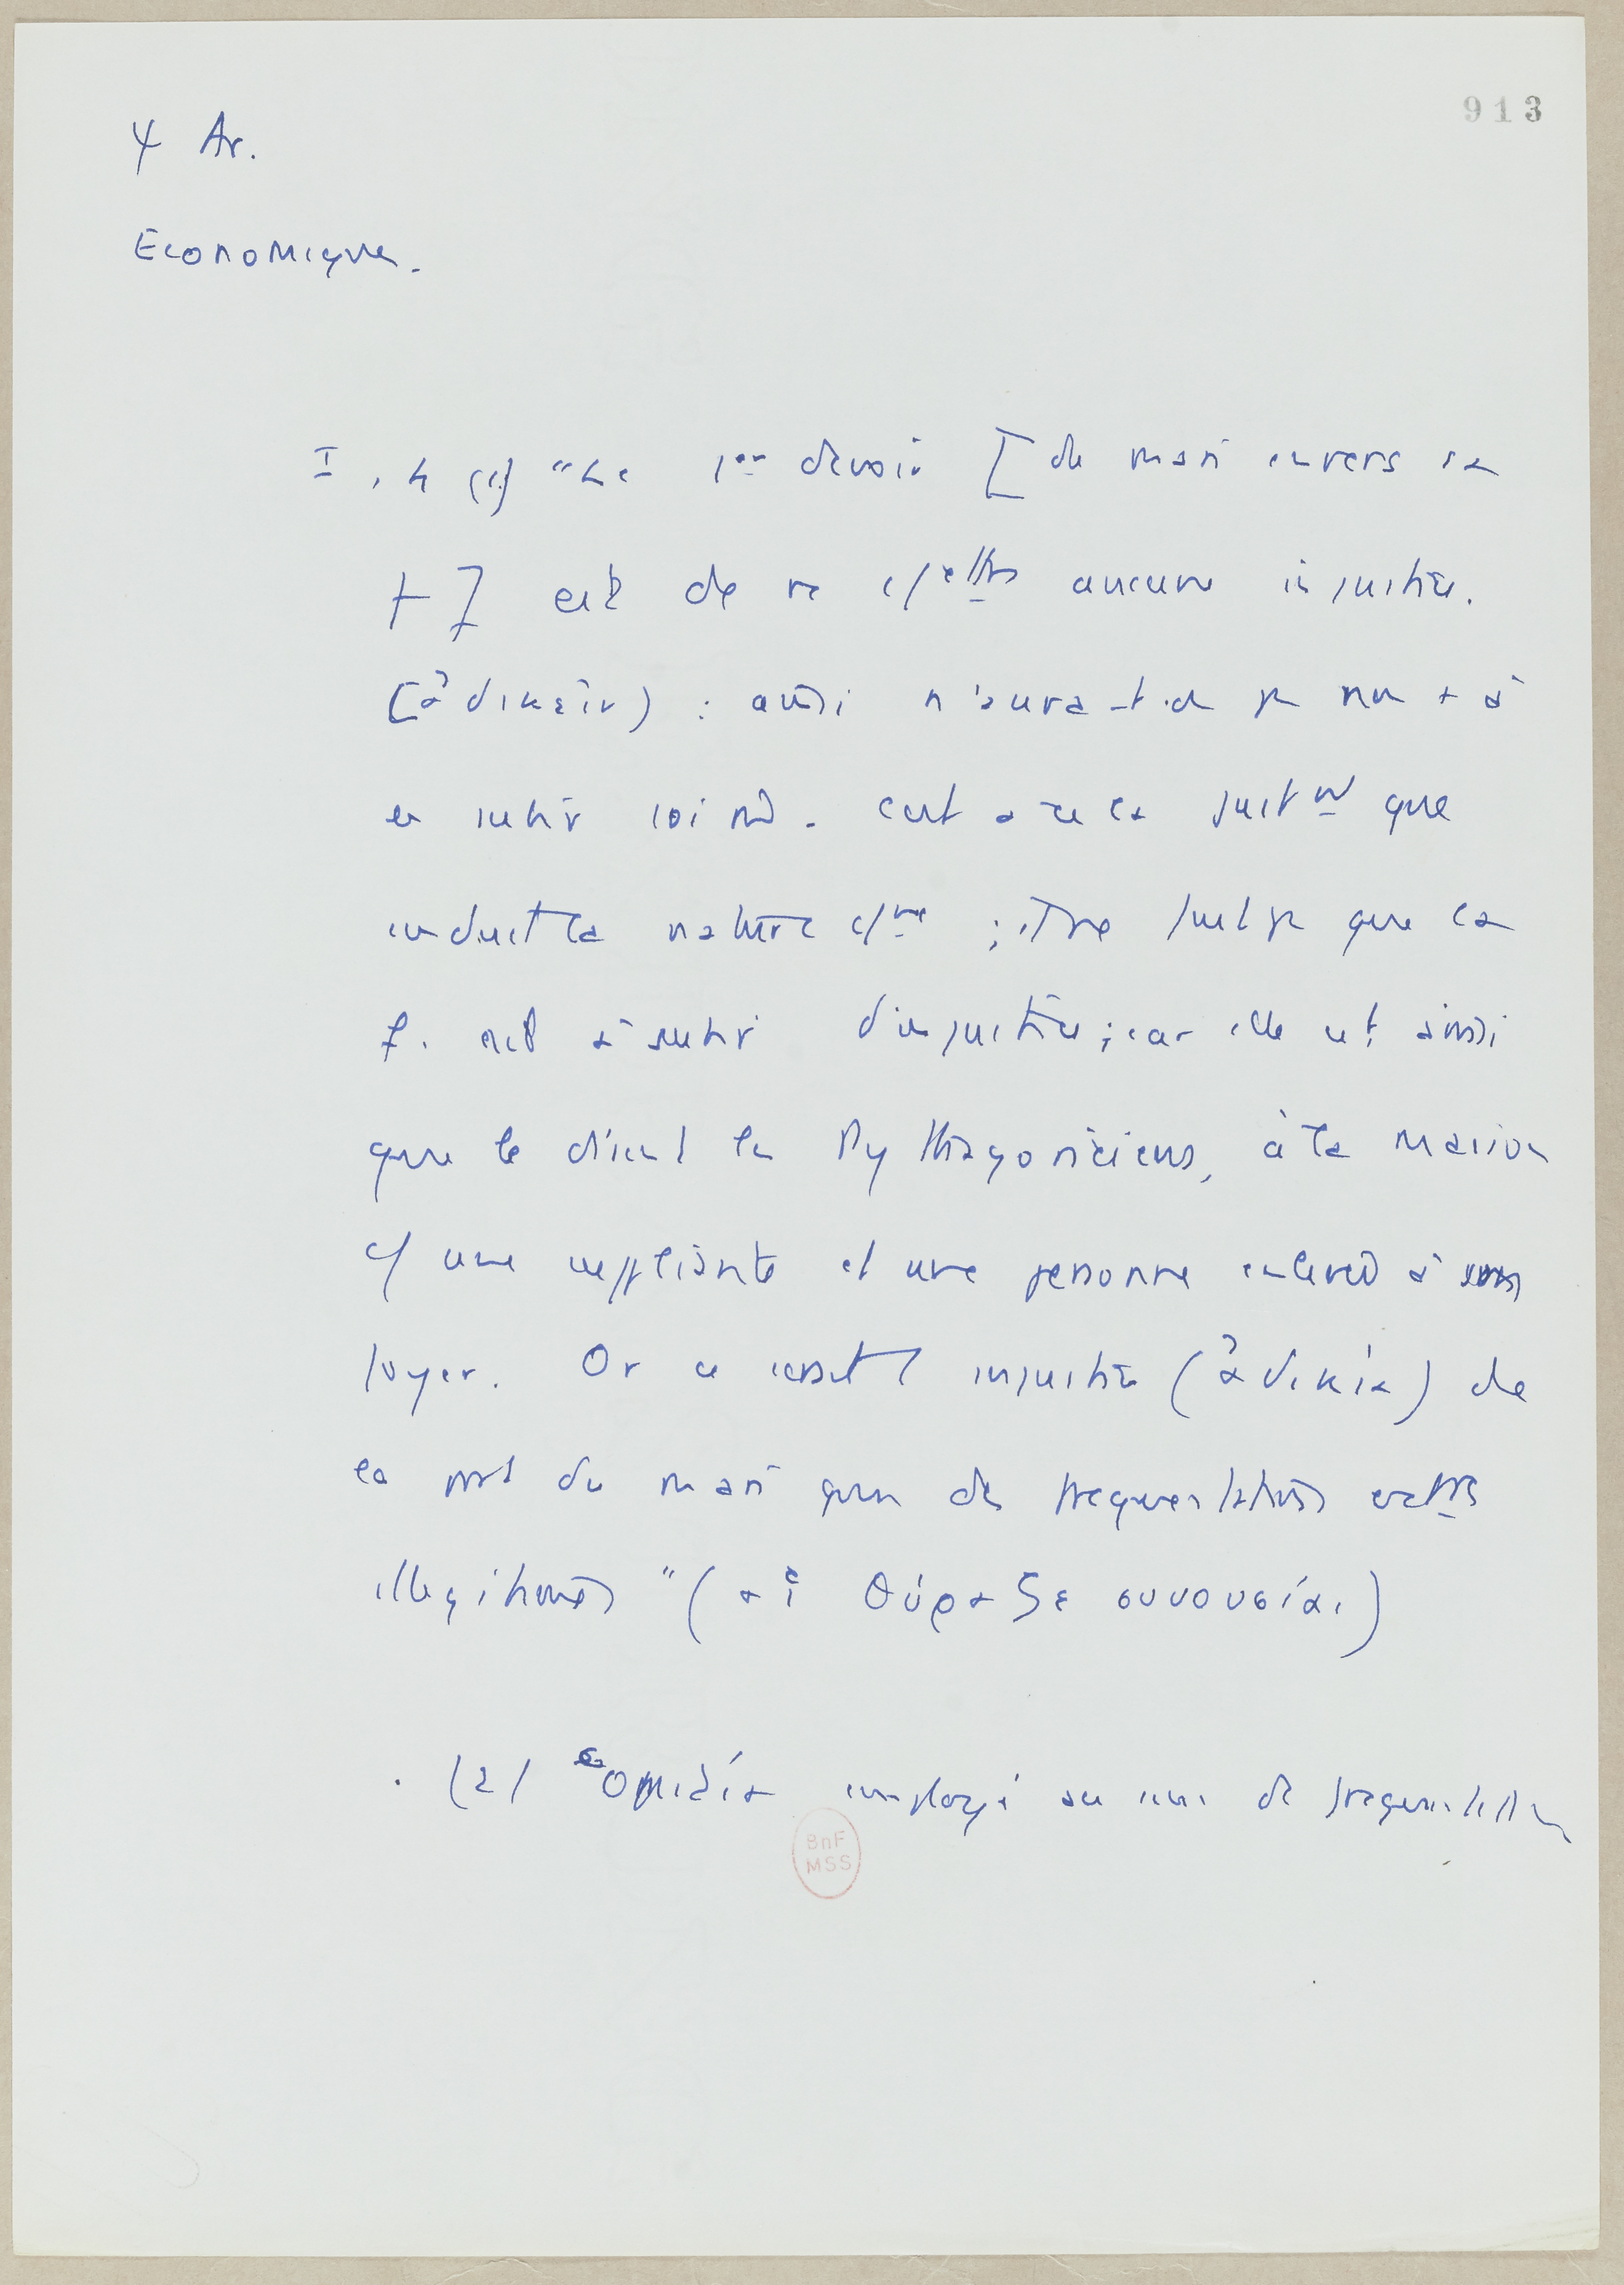 913
Ψ Ar.
Economique.
I, 4 (1) "Le 1er devoir [du mari envers sa
f] est de ne c/ettre aucune injustice.
(ἀδικεῖν) : aussi n'aura-t-il pr nn + à
en subir soi mê. C'est à ce la justnt que
conduit la nature c/ne ; il ne faut p que la
f. ait à subir d'injustice ; car elle est ainsi
que le disent les Pythagoriciens, à la maison
c/ une suppliante et une personne enlevée à son
foyer. Or ce serait injustice (ἀδικία) de
la part du mari que des fréquentations extres
illegitimes" (αἱ θύραζε συνουσίαι)
. (2) ὁμιλία employé au sens de fréquentation